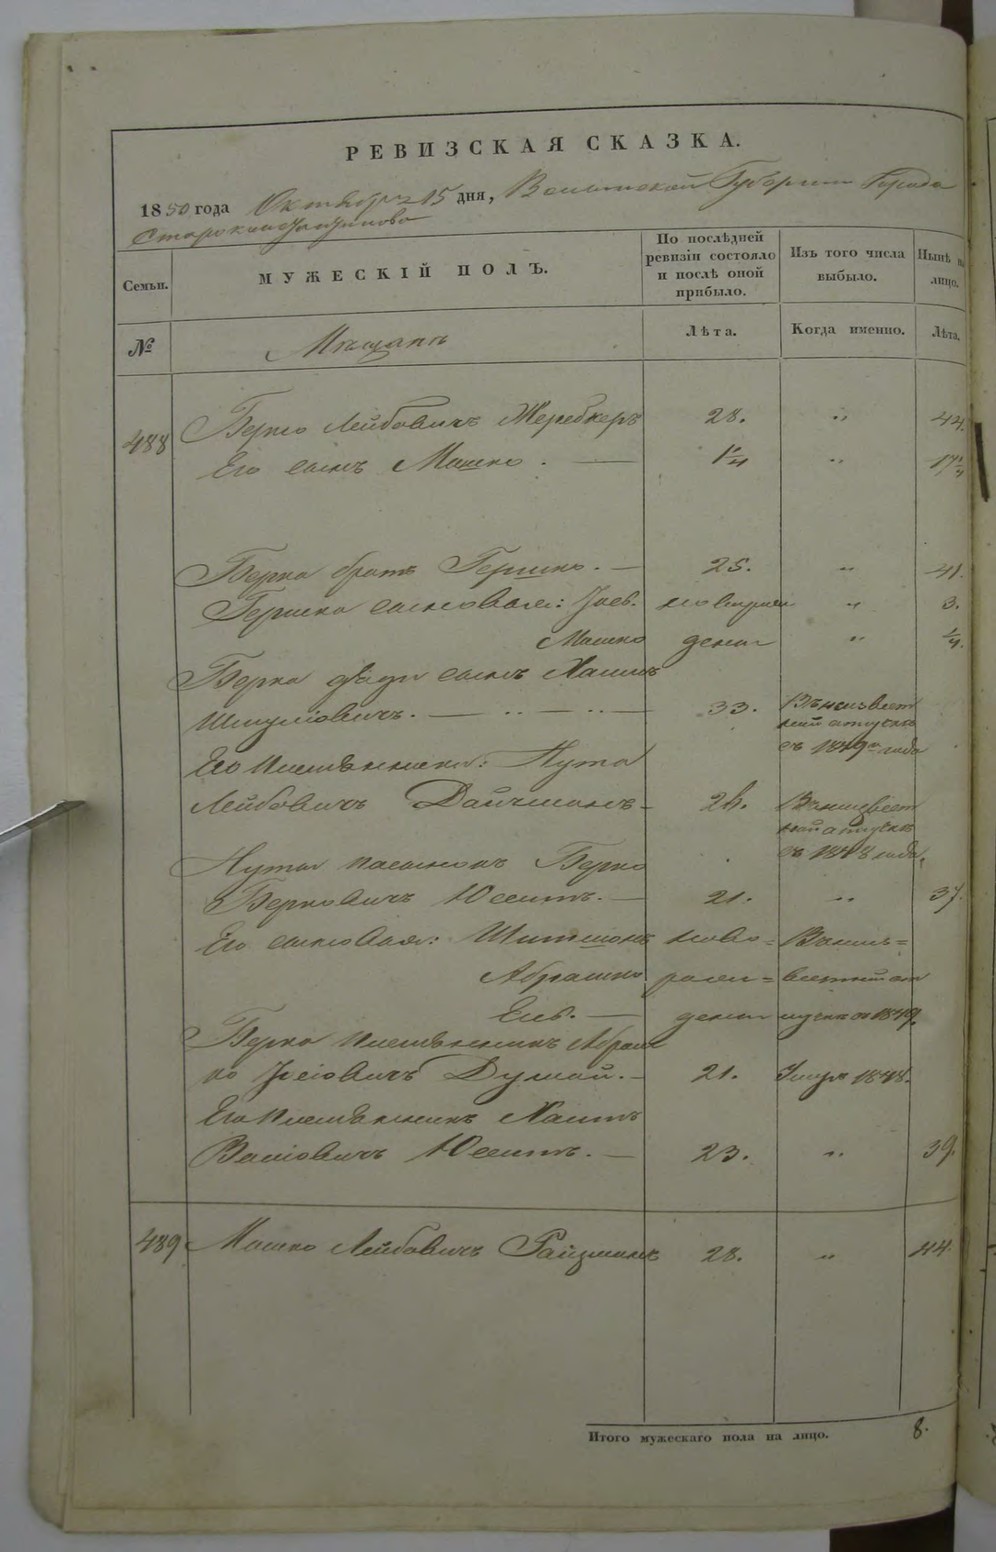 РЕВИЗСКАЯ СКАЗКА.
1850 года Октября 15 дня, Волынской Губернии Города
Староконстантинова
Семьи. МУЖЕСКІЙ ПОЛЪ. По послѣдней ревизіи состояло и послѣ оной прибыло. Изъ того числа выбыло. Нынѣ на лицо.
№ Мѣщанъ Лѣта. Когда именно. Лѣта.
488 Берко Лейбовичъ Жеребкеръ 28. „ 44.
Его сынъ Мошко. — 1¼ „ 17¼
Берка братъ Гершко. — 25. „ 41.
Гершка сыновья: Іось. новорож „ 3.
Мошко дены „ ¼.
Берка дяди сынъ Хаимъ
Шмуліовичъ. — „ — „ — 33. Въ неизвест
ной отлучкѣ
съ 1849го года
Его племянники: Нута
Лейбовичъ Дайчманъ — 26. Въ неизвест
ной отлучкѣ
съ 1848 года.
Нуты пасынокъ Берко
Берковичъ Юсимъ. — 21. „ 37.
Его сыновья: Шимшонъ ново= Въ неиз=
Абрашко рож= вестной от
Ель. — дены лучкѣ съ 1849.
Берка племянникъ Абраш
ко Іосіовичъ — 21. Умре 1848.
Его племянникъ Хаимъ
Юсимъ. — 23. „ 39.
489 Мошко Лейбовичъ Райзманъ 28. „ 44.
Итого мужескаго пола на лицо. 8.